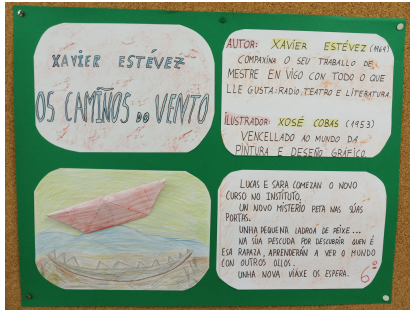 XAVIER ESTÉVEZ
OS CAMIÑOS DO VENTO
AUTOR: XAVIER ESTÉVEZ (1969)
COMPAXINA O SEU TRABALLO DE
MESTRE EN VIGO CON TODO O QUE
LLE GUSTA: RADIO, TEATRO E LITERATURA.
ILUSTRADOR: XOSÉ COBAS (1953)
VENCELLADO AO MUNDO DA
PINTURA E DESEÑO GRÁFICO.
LUCAS E SARA COMEZAN O NOVO
CURSO NO INSTITUTO.
UN NOVO MISTERIO PETA NAS SÚAS
PORTAS.
UNHA PEQUENA LADROA DE PEIXE...
NA SÚA PESCUDA POR DESCUBRIR QUEN É
ESA RAPAZA, APRENDERÁN A VER O MUNDO
CON OUTROS OLLOS.
UNHA NOVA VIAXE OS ESPERA.
6º